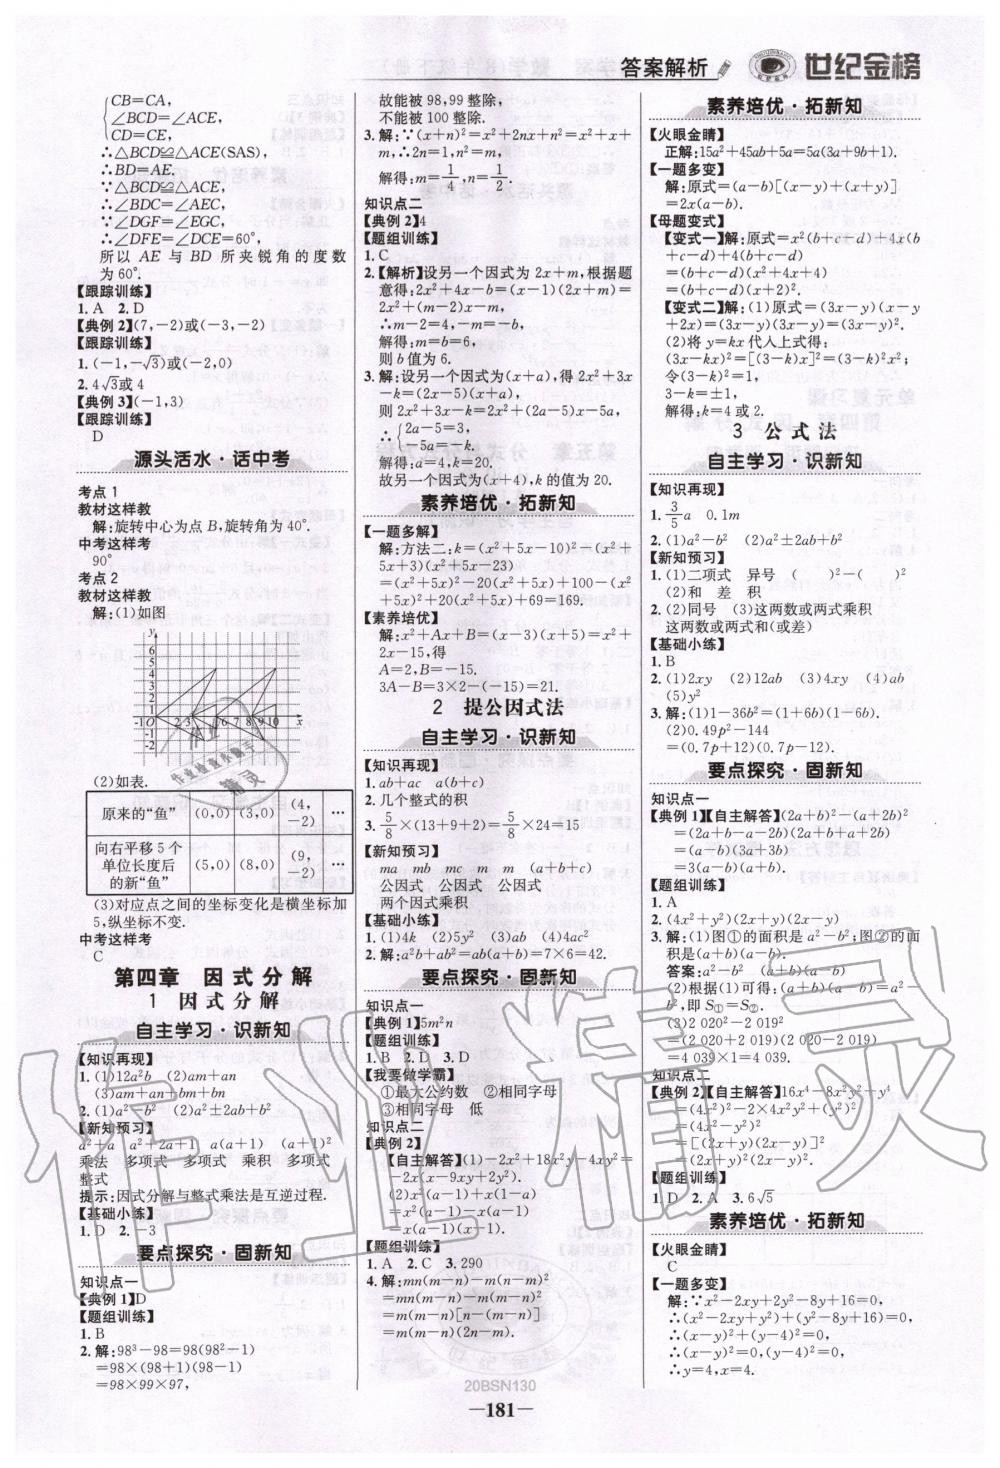 答案解析
世纪金榜
CB=CA,
∠BCD=∠ACE,
CD=CE,
∴△BCD≌△ACE(SAS),
∴BD=AE,
∴∠BDC=∠AEC,
∵∠DGF=∠EGC,
∴∠DFE=∠DCE=60°,
所以 AE 与 BD 所夹锐角的度数
为 60°.
【跟踪训练】
1. A 2. D
【典例 2】(7,-2)或(-3,-2)
【跟踪训练】
1. (-1,-√3)或(-2,0)
2. 4√3或 4
【典例 3】(-1,3)
【跟踪训练】
D
源头活水·话中考
考点 1
教材这样教
解:旋转中心为点 B,旋转角为 40°.
中考这样考
90°
考点 2
教材这样教
解:(1)如图
(2)如表.
原来的“鱼” (0,0) (3,0) (4,-2) …
向右平移 5 个单位长度后的新“鱼” (5,0) (8,0) (9,-2) …
(3)对应点之间的坐标变化是横坐标加
5,纵坐标不变.
中考这样考
C
第四章 因式分解
1 因式分解
自主学习·识新知
【知识再现】
1. (1)12a²b (2)am+an
(3)am+an+bm+bn
2. (1)a²-b² (2)a²±2ab+b²
【新知预习】
a²+a a²+2a+1 a(a+1) (a+1)²
乘法 多项式 多项式 乘积 多项式
整式
提示:因式分解与整式乘法是互逆过程.
【基础小练】
1. D 2. -3
要点探究·固新知
知识点一
【典例 1】D
【题组训练】
1. B
2. 解:98³-98=98(98²-1)
=98×(98+1)(98-1)
=98×99×97,
故能被 98,99 整除,
不能被 100 整除.
3. 解:∵(x+n)²=x²+2nx+n²=x²+x+
m,∴2n=1,m=n²,
解得:m=1/4,n=1/2.
知识点二
【典例 2】4
【题组训练】
1. C
2.【解析】设另一个因式为 2x+m,根据题
意得:2x²+4x-b=(x-1)(2x+m)=
2x²+(m-2)x-m,
∴m-2=4,-m=-b,
解得:m=b=6,
则 b 值为 6.
3. 解:设另一个因式为(x+a),得 2x²+3x
-k=(2x-5)(x+a),
则 2x²+3x-k=2x²+(2a-5)x-5a,
∴{2a-5=3,
-5a=-k.
解得:a=4,k=20.
故另一个因式为(x+4),k 的值为 20.
素养培优·拓新知
【一题多解】
解:方法二:k=(x²+5x-10)²-(x²+
5x+3)(x²+5x-23)
=(x²+5x)²-20(x²+5x)+100-(x²
+5x)²+20(x²+5x)+69=169.
【素养培优】
解:x²+Ax+B=(x-3)(x+5)=x²+
2x-15,得
A=2,B=-15.
3A-B=3×2-(-15)=21.
2 提公因式法
自主学习·识新知
【知识再现】
1. ab+ac a(b+c)
2. 几个整式的积
3. 5/8×(13+9+2)=5/8×24=15
【新知预习】
ma mb mc m m (a+b+c)
公因式 公因式 公因式
两个因式乘积
【基础小练】
1. (1)4k (2)5y² (3)ab (4)4ac²
2. 解:a²b+ab²=ab(a+b)=7×6=42.
要点探究·固新知
知识点一
【典例 1】5m²n
【题组训练】
1. B 2. D 3. D
【我要做学霸】
①最大公约数 ②相同字母
③相同字母 低
知识点二
【典例 2】
【自主解答】(1)-2x²+18x²y-4xy²=
-2x(x-9xy+2y²).
(2)x²(a-1)+x(1-a)
=x²(a-1)-x(a-1)
=x(a-1)(x-1).
【题组训练】
1. A 2. C 3. 290
4. 解:mn(m-n)-m(n-m)²
=mn(m-n)-m(m-n)²
=m(m-n)[n-(m-n)]
=m(m-n)(2n-m).
素养培优·拓新知
【火眼金睛】
正解:15a²+45ab+5a=5a(3a+9b+1).
【一题多变】
解:原式=(a-b)[(x-y)+(x+y)]
=2x(a-b).
【母题变式】
【变式一】解:原式=x²(b+c-d)+4x(b
+c-d)+4(b+c-d)
=(b+c-d)(x²+4x+4)
=(b+c-d)(x+2)².
【变式二】解:(1)原式=(3x-y)(x-y
+2x)=(3x-y)(3x-y)=(3x-y)².
(2)将 y=kx 代入上式得:
(3x-kx)²=[(3-k)x]²=(3-k)²x²;
令(3-k)²=1,
3-k=±1,
解得:k=4 或 2.
3 公式法
自主学习·识新知
【知识再现】
1. 3/5 a 0.1m
2. (1)a²-b² (2)a²±2ab+b²
【新知预习】
1. (1)二项式 异号 ( )²-( )²
(2)和 差 积
2. (2)同号 (3)这两数或两式乘积
这两数或两式和(或差)
【基础小练】
1. B
2. (1)2xy (2)12ab (3)4xy (4)ab
(5)y²
3. 解:(1)1-36b²=(1+6b)(1-6b).
(2)0.49p²-144
=(0.7p+12)(0.7p-12).
要点探究·固新知
知识点一
【典例 1】【自主解答】(2a+b)²-(a+2b)²
=(2a+b-a-2b)(2a+b+a+2b)
=(a-b)(3a+3b)
=3(a-b)(a+b).
【题组训练】
1. A
2. (4x²+y²)(2x+y)(2x-y)
3. 解:(1)图①的面积是 a²-b²;图②的面
积是(a+b)(a-b).
答案:a²-b² (a+b)(a-b)
(2)根据(1)可得:(a+b)(a-b)=a²-
b²,即 S①=S②.
(3)2 020²-2 019²
=(2 020+2 019)(2 020-2 019)
=4 039×1=4 039.
知识点二
【典例 2】【自主解答】16x⁴-8x²y²+y⁴
=(4x²)²-2×4x²y²+(y²)²
=(4x²-y²)²
=[(2x+y)(2x-y)]²
=(2x+y)²(2x-y)².
【题组训练】
1. D 2. A 3. 6√5
素养培优·拓新知
【火眼金睛】
C
【一题多变】
解:∵x²-2xy+2y²-8y+16=0,
∴(x²-2xy+y²)+(y²-8y+16)=0,
∴(x-y)²+(y-4)²=0,
∴(x-y)²=0,(y-4)²=0,
∴y=4,x=4.
20BSN130
—181—
作业精灵